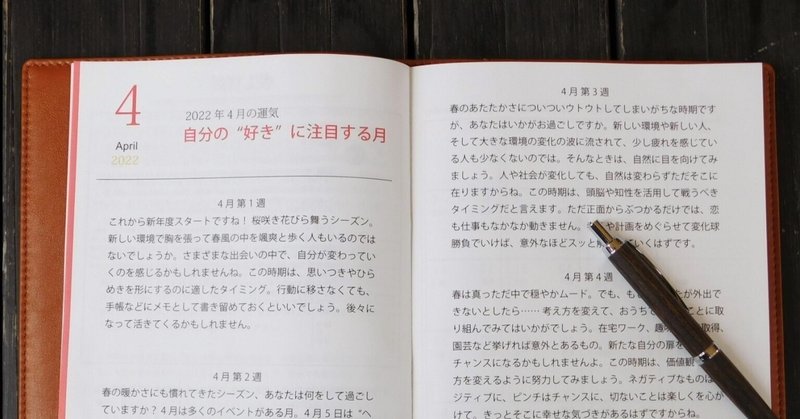 4
April
2022
2022年4月の運気
自分の“好き”に注目する月
4月第1週
これから新年度スタートですね！桜咲き花びら舞うシーズン。
新しい環境で胸を張って春風の中を颯爽と歩く人もいるのでは
ないでしょうか。さまざまな出会いの中で、自分が変わってい
くのを感じるかもしれませんね。この時期は、思いつきやひら
めきを形にするのに適したタイミング。行動に移さなくても、
手帳などにメモとして書き留めておくといいでしょう。後々に
なって活きてくるかもしれません。
4月第2週
春の暖かさにも慣れてきたシーズン、あなたは何をして過ごし
ていますか？4月は多くのイベントがある月。4月5日は“ヘ
4月第3週
春のあたたかさについついウトウトしてしまいがちな時期です
が、あなたはいかがお過ごしですか。新しい環境や新しい人、
そして大きな環境の変化の波に流されて、少し疲れを感じてい
る人も少なくないのでは。そんなときは、自然に目を向けてみ
ましょう。人や社会が変化しても、自然は変わらずただそこに
在りますからね。この時期は、頭脳や知性を活用して戦うべき
タイミングだと言えます。ただ正面からぶつかるだけでは、恋
も仕事もなかなか動きません。や計画をめぐらせて変化球
勝負でいけば、意外なほどスッと解いくはずです。
4月第4週
春は真っただ中で穏やかムード。でも、もしたが外出で
きないとしたら……考え方を変えて、おうちでことに取
り組んでみてはいかがでしょう。在宅ワーク、趣取得、
園芸など挙げれば意外とあるもの。新たな自分の扉を
チャンスになるかもしれませんよ。この時期は、価値観
方を変えるように努力してみましょう。ネガティブなものは
ジティブに、ピンチはチャンスに、切ないことは楽しくを心か
けて。きっとそこに幸せな気づきがあるはずですからね。